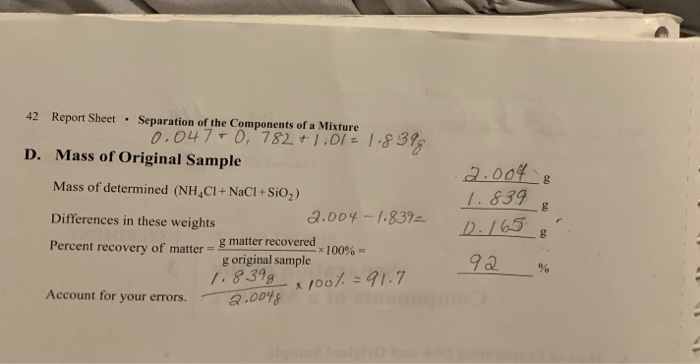 42 Report Sheet • Separation of the Components of a Mixture
0.047 + 0.782 + 1.01 = 1.839g
D. Mass of Original Sample 2.004 g
Mass of determined (NH₄Cl + NaCl + SiO₂) 1.839 g
Differences in these weights 2.004 - 1.839 = 0.165 g
Percent recovery of matter = g matter recovered / g original sample × 100% = 92 %
1.839g / 2.004g × 100% = 91.7
Account for your errors.